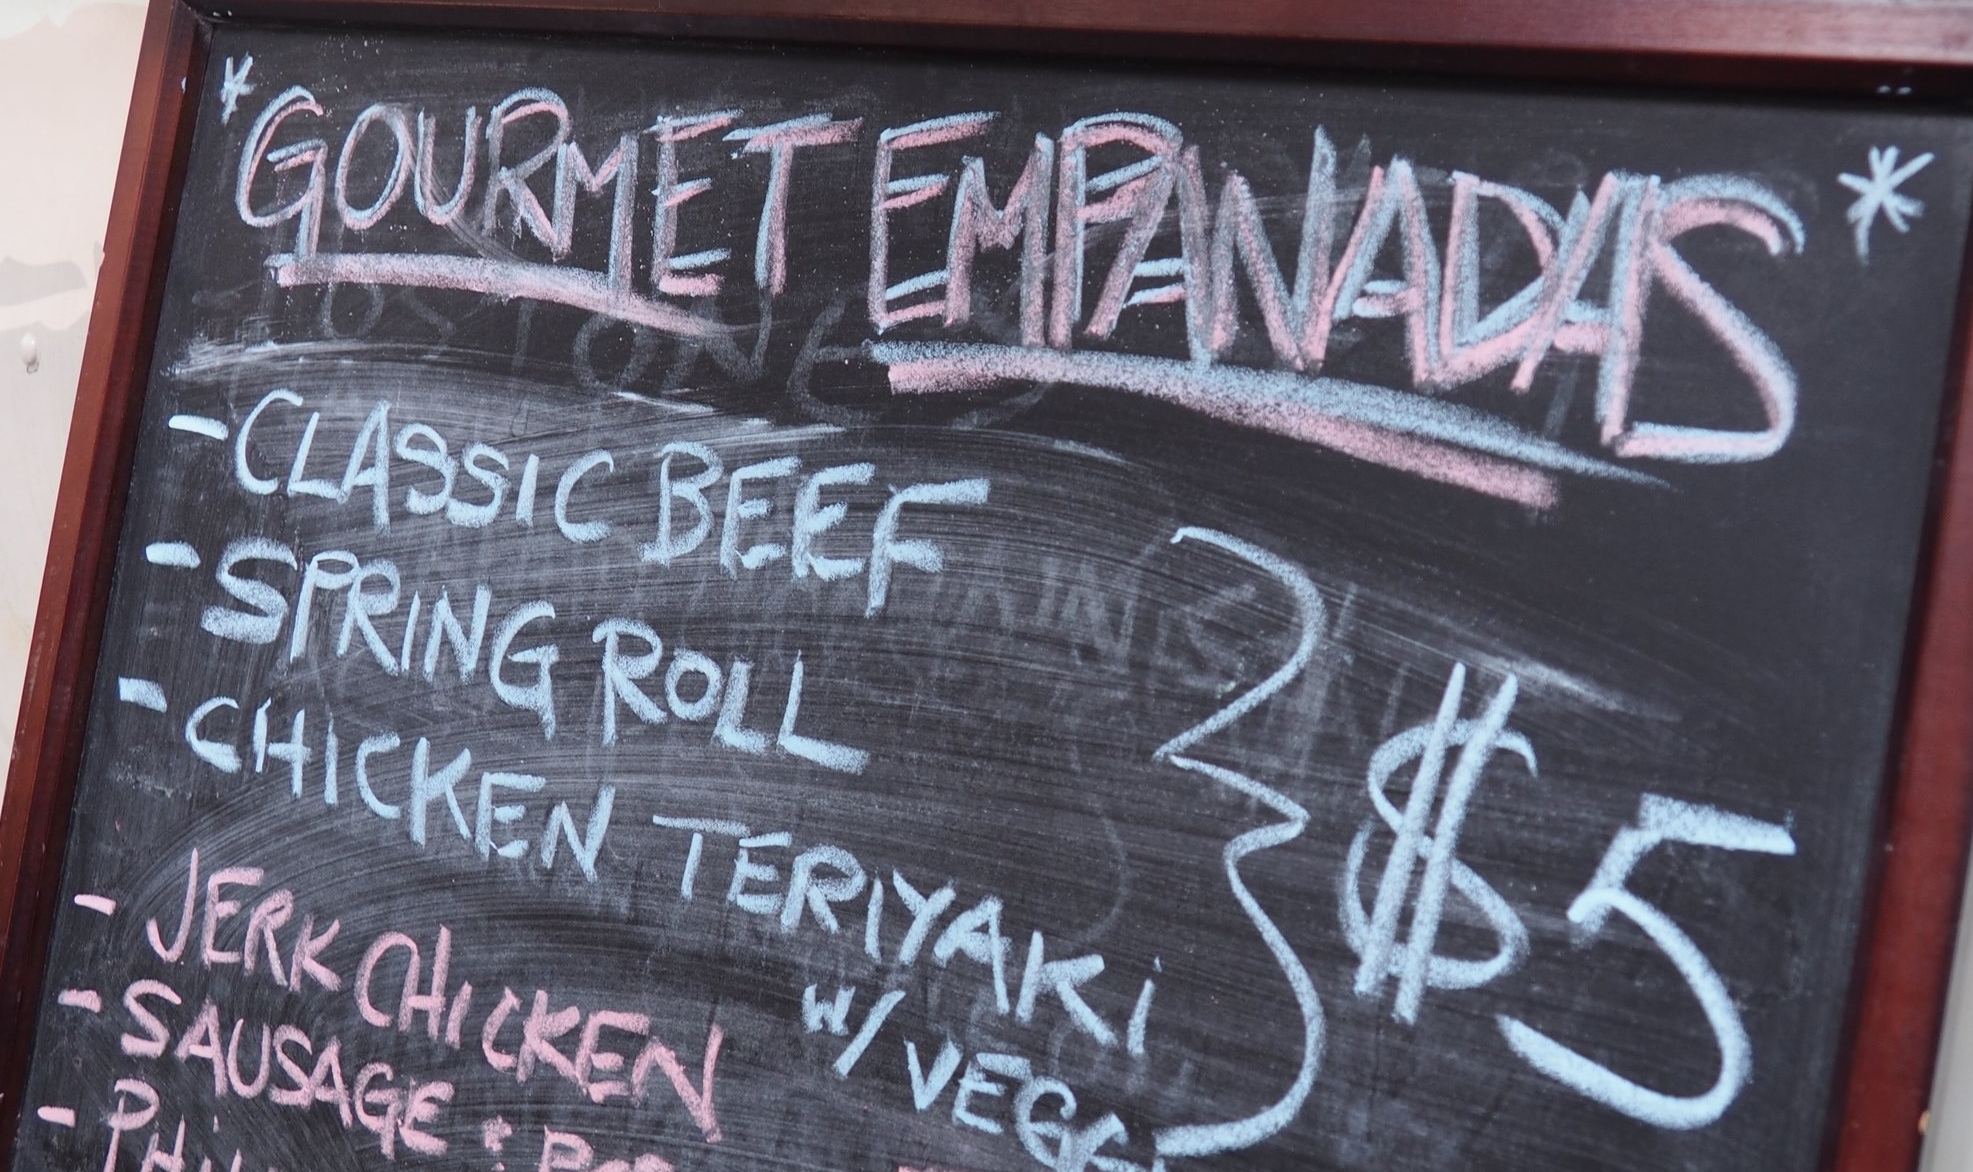 * GOURMET EMPANADAS *
- CLASSIC BEEF
- SPRING ROLL
- CHICKEN TERIYAKi
W/ VEGG
$5
- JERK CHICKEN
- SAUSAGE